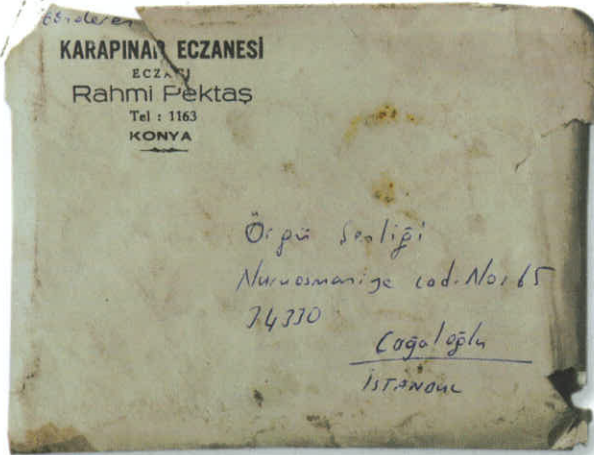 Gönderen
KARAPINAR ECZANESİ
ECZACI
Rahmi Pektaş
Tel : 1163
KONYA
Örgü Şenliği
Nuruosmaniye cad. No: 65
34330
Cağaloğlu
İSTANBUL